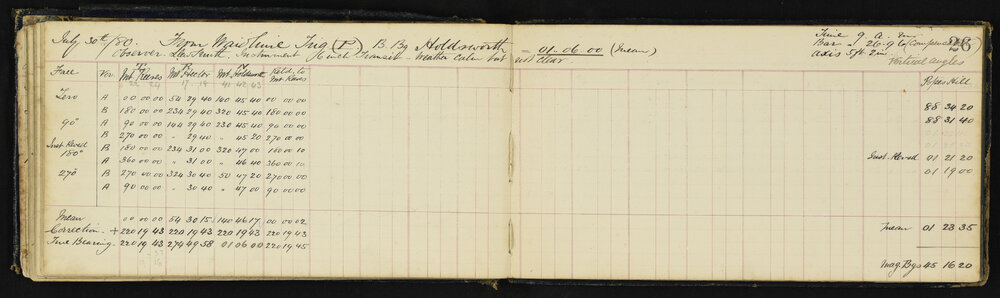 July 30th/80. From Waidline Trig (P) B. Bg Holdsworth = 01.06.00 (Mean) Time 9 a.m 26
Observer Instrument 6 inch Transit Weather calm but not clear. Bar 26.96 (Compensated)
axis 5ft 2in
Vertical angles
Face Ver Mt Reeves Mt Hector Mt Holdsworth Retd. to Mt Reeves Popes Hill
Zero A 00 00 00 54 29 40 140 45 40 00 00 00
B 180 00 00 234 29 40 320 45 40 180 00 00 88 34 20
90° A 90 00 00 144 29 40 230 45 40 90 00 00 88 31 40
B 270 00 00 " 29 40 " 45 20 270 00 00
Inst Revsd 180° B 180 00 00 234 31 00 320 47 00 180 00 10
A 360 00 00 " 31 00 " 46 40 360 00 10 Inst. Revsd 01 21 20
270 B 270 00 00 324 30 40 50 47 20 270 00 00 01 19 00
A 90 00 00 " 30 40 " 47 00 90 00 00
Mean 00 00 00 54 30 15 140 46 17 00 00 02
Correction + 220 19 43 220 19 43 220 19 43 220 19 43 Mean 01 23 35
True Bearing 220 19 43 274 49 58 01 06 00 220 19 45
Mag. Bgs 45 16 20